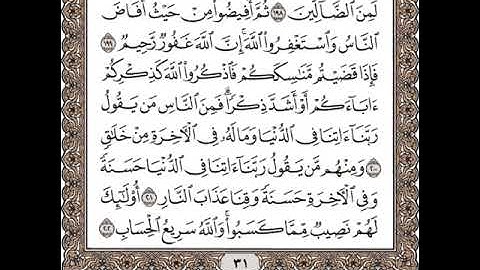 لَمِنَ ٱلضَّآلِّينَ ١٩٨ ثُمَّ أَفِيضُوا۟ مِنْ حَيْثُ أَفَاضَ
ٱلنَّاسُ وَٱسْتَغْفِرُوا۟ ٱللَّهَ ۚ إِنَّ ٱللَّهَ غَفُورٌ رَّحِيمٌ ١٩٩
فَإِذَا قَضَيْتُم مَّنَـٰسِكَكُمْ فَٱذْكُرُوا۟ ٱللَّهَ كَذِكْرِكُمْ
ءَابَآءَكُمْ أَوْ أَشَدَّ ذِكْرًا ۗ فَمِنَ ٱلنَّاسِ مَن يَقُولُ
رَبَّنَآ ءَاتِنَا فِى ٱلدُّنْيَا وَمَا لَهُۥ فِى ٱلْـَٔاخِرَةِ مِنْ خَلَـٰقٍ
٢٠٠ وَمِنْهُم مَّن يَقُولُ رَبَّنَآ ءَاتِنَا فِى ٱلدُّنْيَا حَسَنَةً
وَفِى ٱلْـَٔاخِرَةِ حَسَنَةً وَقِنَا عَذَابَ ٱلنَّارِ ٢٠١ أُو۟لَـٰٓئِكَ
لَهُمْ نَصِيبٌ مِّمَّا كَسَبُوا۟ ۚ وَٱللَّهُ سَرِيعُ ٱلْحِسَابِ ٢٠٢
٣١